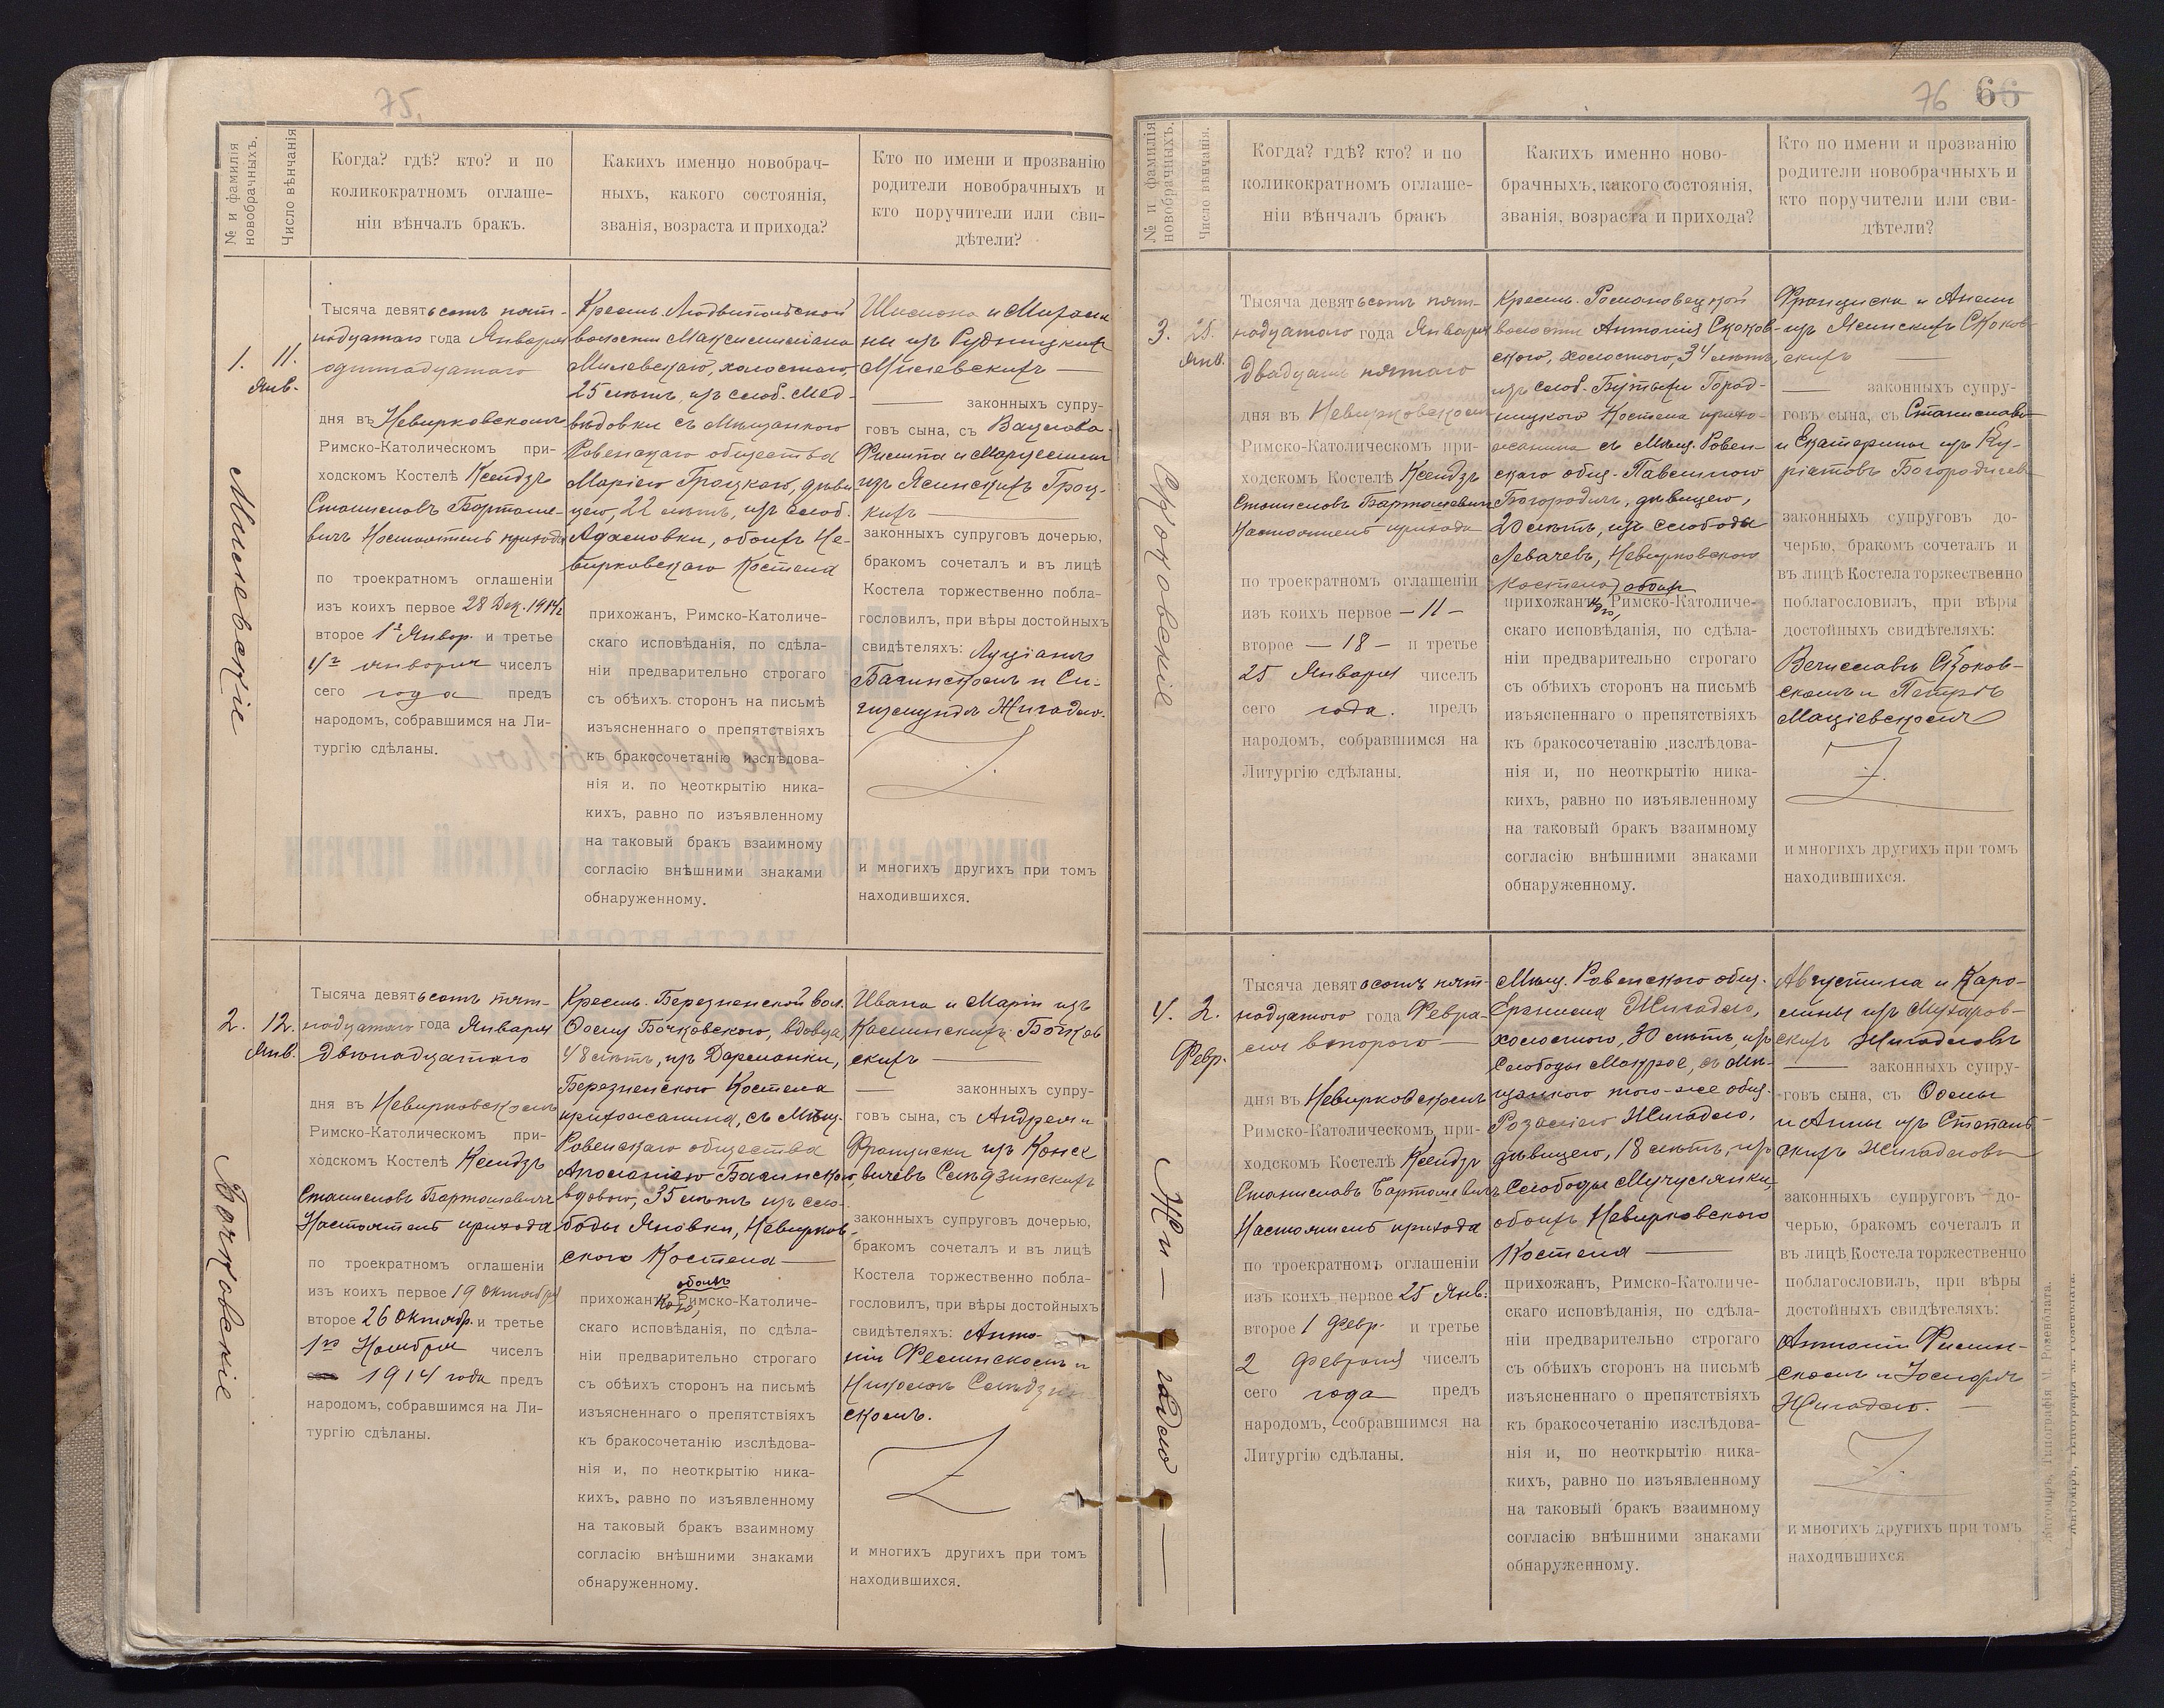 75.
№ и фамилія
новобрачныхъ.
Число вѣнчанія
Когда? гдѣ? кто? и по
коликократномъ оглаше-
ніи вѣнчалъ бракъ.
Какихъ именно новобрач-
ныхъ, какого состоянія,
званія, возраста и прихода?
Кто по имени и прозванію
родители новобрачныхъ и
кто поручители или сви-
дѣтели?
1.
11.
Янв.
Милевскіе
Тысяча девятьсотъ пят-
надцатаго года Января
одиннадцатаго
дня въ Невирковскомъ
Римско-Католическомъ при-
ходскомъ Костелѣ Ксендзъ
Станиславъ Бартоше-
вичъ Настоятель прихода
по троекратномъ оглашеніи
изъ коихъ первое 28 Дек. 1914 г.
второе 1го Январ. и третье
4го января чиселъ
сего года предъ
народомъ, собравшимся на Ли-
тургію сдѣланы.
Крестьян. Людвипольской
волости Максимиліана
Милевскаго, холостаго,
25 лѣтъ, изъ слоб. Мед-
вѣдовки съ Мѣщанкою
Ровенскаго общества
Маріею Гроцкою, дѣви-
цею, 22 лѣтъ, изъ слоб.
Адамовки, обоихъ Не-
вирковскаго Костела
прихожан, Римско-Католиче-
скаго исповѣданія, по сдѣла-
ніи предварительно строгаго
съ обѣихъ сторонъ на письмѣ
изъясненнаго о препятствіяхъ
къ бракосочетанію изслѣдова-
нія и, по неоткрытію ника-
кихъ, равно по изъявленному
на таковый бракъ взаимному
согласію внѣшними знаками
обнаруженному.
ны изъ Рудницкихъ
Милевскихъ
законныхъ супру-
говъ сына, съ Вацлава-
Филипа и Марцелины
изъ Ясинскихъ Гроц-
кихъ
законныхъ супруговъ дочерью,
бракомъ сочеталъ и въ лицѣ
Костела торжественно побла-
гословилъ, при вѣры достойныхъ
свидѣтеляхъ: Луціанъ
Багинскомъ и Си-
гизмундъ Жигадло.
и многихъ другихъ при томъ
находившихся.
2.
12.
Янв.
Бочковскіе
Тысяча девятьсотъ пят-
надцатаго года Января
двѣнадцатаго
дня въ Невирковскомъ
Римско-Католическомъ при-
ходскомъ Костелѣ Ксендзъ
Станиславъ Бартошевичъ
Настоятель прихода
по троекратномъ оглашеніи
изъ коихъ первое 19 Октября
второе 26 Октябр. и третье
1го Ноября чиселъ
1914 года предъ
народомъ, собравшимся на Ли-
тургію сдѣланы.
Крестьян. Березненской вол.
Бочковскаго, вдовца,
48 лѣтъ, изъ
Березненскаго Костела
прихожанина, съ Мѣщ.
Ровенскаго общества
Аполоніею Багинскою,
вдовою, 35 лѣтъ изъ сло-
боды Яновки, Невирков-
скаго Костела
обоихъ
прихожан, Римско-Католиче-
скаго исповѣданія, по сдѣла-
ніи предварительно строгаго
съ обѣихъ сторонъ на письмѣ
изъясненнаго о препятствіяхъ
къ бракосочетанію изслѣдова-
нія и, по неоткрытію ника-
кихъ, равно по изъявленному
на таковый бракъ взаимному
согласію внѣшними знаками
обнаруженному.
Ивана и Маріи изъ
Каминскихъ Бочков-
скихъ
законныхъ супру-
говъ сына, съ Андрея и
Франциски изъ
законныхъ супруговъ дочерью,
бракомъ сочеталъ и въ лицѣ
Костела торжественно побла-
гословилъ, при вѣры достойныхъ
свидѣтеляхъ: Анто-
скомъ.
и многихъ другихъ при томъ
находившихся.
76 66
№ и фамилія
новобрачныхъ.
Число вѣнчанія.
Когда? гдѣ? кто? и по
коликократномъ оглаше-
ніи вѣнчалъ бракъ
Какихъ именно ново-
брачныхъ, какого состоянія,
званія, возраста и прихода?
Кто по имени и прозванію
родители новобрачныхъ и
кто поручители или сви-
дѣтели?
3.
25.
Янв.
Скоковскіе
Тысяча девятьсотъ пят-
надцатаго года Января
двадцать пятаго
дня въ Невирковскомъ
Римско-Католическомъ при-
ходскомъ Костелѣ Ксендзъ
Станиславъ Бартошевичъ
Настоятель прихода
по троекратномъ оглашеніи
изъ коихъ первое — 11 —
второе — 18 — и третье
25 Января чиселъ
сего года. предъ
народомъ, собравшимся на
Литургію сдѣланы.
Крестьян. Романовецкой
волости Антонія Скоков-
скаго, холостаго, 34 лѣтъ,
изъ слоб. Бутыли Город-
ницкаго Костела прихо-
жанина съ Мѣщ. Ровен-
скаго общ. Павлиною
Богородичъ, дѣвицею,
20 лѣтъ, изъ слободы
Левачевъ, Невирковскаго
Костела, обоихъ
прихожан, Римско-Католиче-
скаго исповѣданія, по сдѣла-
ніи предварительно строгаго
съ обѣихъ сторонъ на письмѣ
изъясненнаго о препятствіяхъ
къ бракосочетанію изслѣдова-
нія и, по неоткрытію ника-
кихъ, равно по изъявленному
на таковый бракъ взаимному
согласію внѣшними знаками
обнаруженному.
Франциска и Анели
изъ Ясинскихъ Скоков-
скихъ
законныхъ супру-
говъ сына, съ Станислава
и Екатерины изъ Ку-
ріатовъ Богородичей
законныхъ супруговъ до-
черью, бракомъ сочеталъ и
въ лицѣ Костела торжественно
поблагословилъ, при вѣры
достойныхъ свидѣтеляхъ:
Вячеславъ Скоков-
скомъ и Петръ
Маціевскомъ
и многихъ другихъ при томъ
находившихся.
4.
2.
Февр.
Жи — гадло —
Тысяча девятьсотъ пят-
надцатаго года Февра-
ля второго
дня въ Невирковскомъ
Римско-Католическомъ, при-
ходскомъ Костелѣ Ксендзъ
Станиславъ Бартошевичъ
Настоятель прихода
по троекратномъ оглашеніи
изъ коихъ первое 25 Янв.
второе 1 Февр. и третье
2 Февраля чиселъ
сего года предъ
народомъ, собравшимся на
Литургію сдѣланы.
Мѣщ. Ровенскаго общ.
Жигадло,
холостаго, 30 лѣтъ, изъ
Слободы Мокрое, съ Мѣ-
щанкою того-же общ.
Розаліею Жигадло,
дѣвицею, 18 лѣтъ, изъ
Слободы
обоихъ Невирковскаго
Костела
прихожан, Римско-Католиче-
скаго исповѣданія, по сдѣла-
ніи предварительно строгаго
съ обѣихъ сторонъ на письмѣ
изъясненнаго о препятствіяхъ
къ бракосочетанію изслѣдова-
нія и, по неоткрытію ника-
кихъ, равно по изъявленному
на таковый бракъ взаимному
согласію внѣшними знаками
обнаруженному.
Августина и Каро-
лины изъ Мухаров-
скихъ Жигадловъ
законныхъ супру-
говъ сына, съ
и Анны изъ
скихъ Жигадловъ
законныхъ супруговъ до-
черью, бракомъ сочеталъ и
въ лицѣ Костела торжественно
поблагословилъ, при вѣры
достойныхъ свидѣтеляхъ:
Антоніи Филин-
скомъ и
Жигадло.
и многихъ другихъ при томъ
находившихся
Житоміръ, Типографія М. Роменблата.